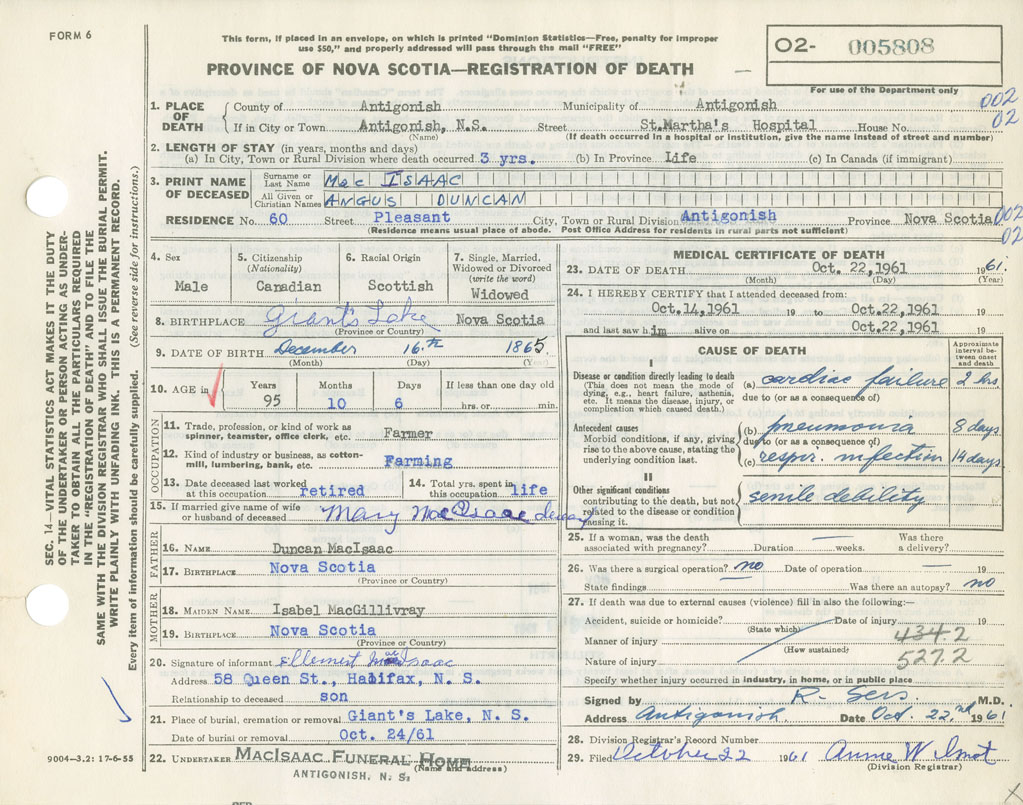 FORM 6
This form, if placed in an envelope, on which is printed "Dominion Statistics—Free, penalty for improper
use $50," and properly addressed will pass through the mail "FREE"
02- 005808
PROVINCE OF NOVA SCOTIA—REGISTRATION OF DEATH
For use of the Department only
002
02
1. PLACE OF DEATH County of Antigonish Municipality of Antigonish
If in City or Town Antigonish, N.S. Street St.Martha's Hospital House No.
(Name) (If death occurred in a hospital or institution, give the name instead of street and number)
2. LENGTH OF STAY (in years, months and days)
(a) In City, Town or Rural Division where death occurred 3 yrs. (b) In Province Life (c) In Canada (if immigrant)
3. PRINT NAME OF DECEASED Surname or Last Name Mac ISAAC
All Given or Christian Names ANGUS DUNCAN
RESIDENCE No. 60 Street Pleasant City, Town or Rural Division Antigonish Province Nova Scotia 002
(Residence means usual place of abode. Post Office Address for residents in rural parts not sufficient) 02
4. Sex Male
5. Citizenship (Nationality) Canadian
6. Racial Origin Scottish
7. Single, Married, Widowed or Divorced (write the word) Widowed
8. BIRTHPLACE Giant's Lake Nova Scotia
(Province or Country)
9. DATE OF BIRTH December 16.th 1865.
(Month) (Day) (Y
10. AGE in Years Months Days If less than one day old
95 10 6 hrs. or min.
OCCUPATION
11. Trade, profession, or kind of work as spinner, teamster, office clerk, etc. Farmer
12. Kind of industry or business, as cotton-mill, lumbering, bank, etc. Farming
13. Date deceased last worked at this occupation retired
14. Total yrs. spent in this occupation life
15. If married give name of wife or husband of deceased Mary MacIsaac
FATHER
16. NAME Duncan MacIsaac
17. BIRTHPLACE Nova Scotia
(Province or Country)
MOTHER
18. MAIDEN NAME Isabel MacGillivray
19. BIRTHPLACE Nova Scotia
(Province or Country)
20. Signature of informant MacIsaac
Address 58 Queen St., Halifax, N. S.
Relationship to deceased son
21. Place of burial, cremation or removal Giant's Lake, N. S.
Date of burial or removal Oct. 24/61
22. UNDERTAKER MACISAAC FUNERAL HOME
(Name and address)
ANTIGONISH, N. S.
MEDICAL CERTIFICATE OF DEATH
23. DATE OF DEATH Oct. 22,1961 1961.
(Month) (Day) (Year)
24. I HEREBY CERTIFY that I attended deceased from:
Oct.14,1961 19 to Oct.22,1961 19
and last saw him alive on Oct.22,1961 19
CAUSE OF DEATH
Approximate interval between onset and death
I
Disease or condition directly leading to death
(This does not mean the mode of dying, e.g., heart failure, asthenia, etc. It means the disease, injury, or complication which caused death.)
(a) cardiac failure 2 hrs
due to (or as a consequence of)
Antecedent causes
Morbid conditions, if any, giving rise to the above cause, stating the underlying condition last.
(b) pneumonia 8 days
due to (or as a consequence of)
(c) respir. infection 14 days
II
Other significant conditions
contributing to the death, but not related to the disease or condition causing it.
senile debility
25. If a woman, was the death associated with pregnancy? Duration weeks. Was there a delivery?
26. Was there a surgical operation? no Date of operation 19
State findings Was there an autopsy? no
27. If death was due to external causes (violence) fill in also the following:—
Accident, suicide or homicide? Date of injury 19
(State which)
Manner of injury 434.2
(How sustained)
Nature of injury 527.2
Specify whether injury occurred in industry, in home, or in public place
Signed by R. Sers M.D.
Address Antigonish Date Oct. 22,nd 1961
28. Division Registrar's Record Number
29. Filed October 22 1961 Anne W
(Division Registrar)
SEC. 14—VITAL STATISTICS ACT MAKES IT THE DUTY
OF THE UNDERTAKER OR PERSON ACTING AS UNDER-
TAKER TO OBTAIN ALL THE PARTICULARS REQUIRED
IN THE "REGISTRATION OF DEATH" AND TO FILE THE
SAME WITH THE DIVISION REGISTRAR WHO SHALL ISSUE THE BURIAL PERMIT.
WRITE PLAINLY WITH UNFADING INK. THIS IS A PERMANENT RECORD.
Every item of information should be carefully supplied. (See reverse side for instructions.)
9004—3.2: 17-6-55